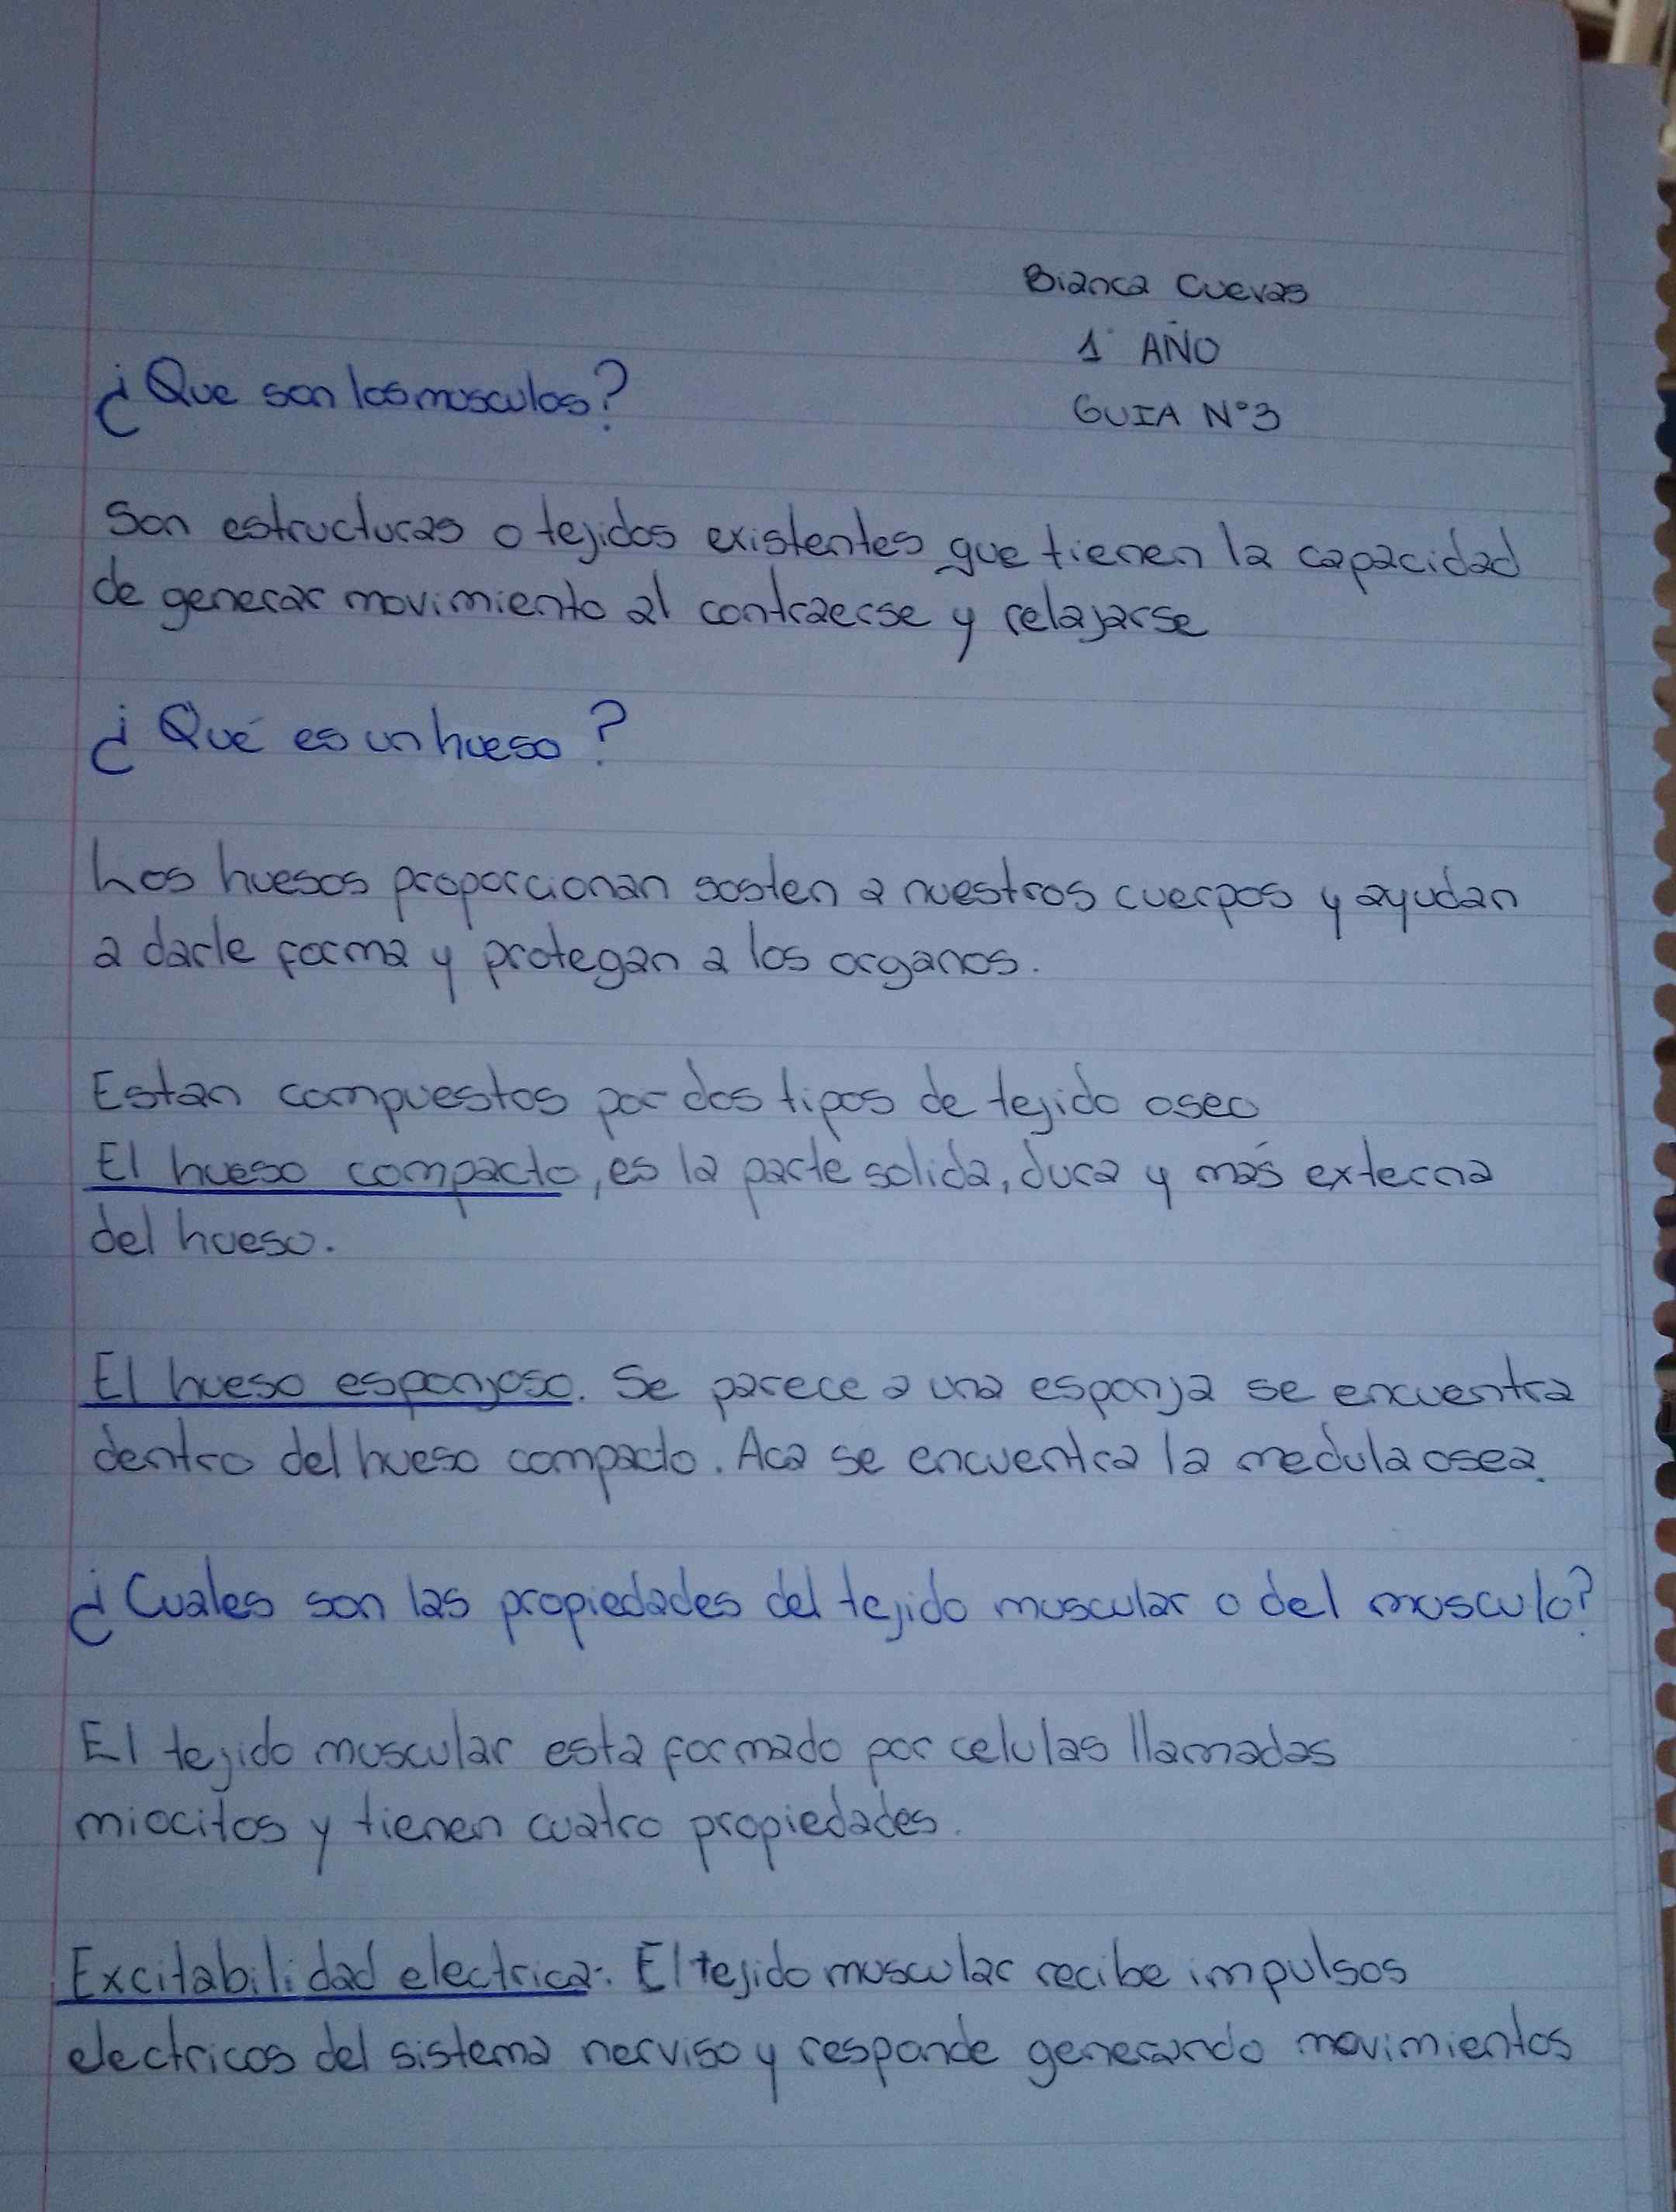 Bianca Cuevas
1° AÑO
GUIA N°3
¿Que son los musculos?
Son estructuras o tejidos existentes que tienen la capacidad
de generar movimiento al contraerse y relajarse
¿Qué es un hueso?
Los huesos proporcionan sosten a nuestros cuerpos y ayudan
a darle forma y protegan a los organos.
Estan compuestos por dos tipos de tejido oseo
El hueso compacto, es la parte solida, dura y más externa
del hueso.
El hueso esponjoso. Se parece a una esponja se encuentra
dentro del hueso compacto. Aca se encuentra la medula osea.
¿Cuales son las propiedades del tejido muscular o del musculo?
El tejido muscular esta formado por celulas llamadas
miocitos y tienen cuatro propiedades.
Excitabilidad electrica: El tejido muscular recibe impulsos
electricos del sistema nerviso y responde generando movimientos